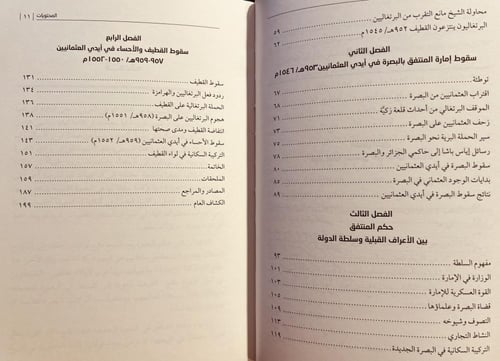 محاولة الشيخ مانع التقرب من البرتغاليين ٥٩
البرتغاليون ينتزعون القطيف ٩٥٢هـ/ ١٥٤٥م ٦٢
الفصل الثاني
سقوط إمارة المنتفق بالبصرة في أيدي العثمانيين ٩٥٣هـ/ ١٥٤٦م
توطئة ٦٧
اقتراب العثمانيين من البصرة ٦٨
الموقف البرتغالي من أحداث قلعة زكيّة ٧٠
زحف العثمانيين على البصرة
سير الحملة البرية نحو البصرة
رسائل إياس باشا إلى حاكمي الجزائر والبصرة
سقوط البصرة في أيدي العثمانيين ٨٠
بدايات الوجود العثماني في البصرة ٨٥
نتائج سقوط البصرة في أيدي العثمانيين ٨٩
الفصل الثالث
حكم المنتفق
بين الأعراف القبلية وسلطة الدولة
مفهوم السلطة ٩٣
الوزارة في الإمارة ١٠١
القوة العسكرية للإمارة
قضاة البصرة وعلماؤها ١٠٥
التصوف وشيوخه ١٠٩
النشاط التجاري
التركيبة السكانية في البصرة الجديدة ١١٩
المحتويات | ١١
الفصل الرابع
سقوط القطيف والأحساء في أيدي العثمانيين
٩٥٧-٩٥٩هـ/ ١٥٥٠-١٥٥٢م
سقوط القطيف ١٣١
ردود فعل البرتغاليين والهرامزة ١٣٤
الحملة البرتغالية على القطيف ١٣٦
هجوم البرتغاليين على البصرة (٩٥٨هـ/ ١٥٥١م) ١٣٨
انتفاضة القطيف ومدى صحتها ١٤١
سقوط الأحساء في أيدي العثمانيين (٩٥٩هـ/ ١٥٥٢م) ١٤٣
التركيبة السكانية في لواء القطيف ١٥١
الخاتمة ١٥٧
الملحقات ١٥٩
المصادر والمراجع ١٨٧
الكشاف العام ١٩٩